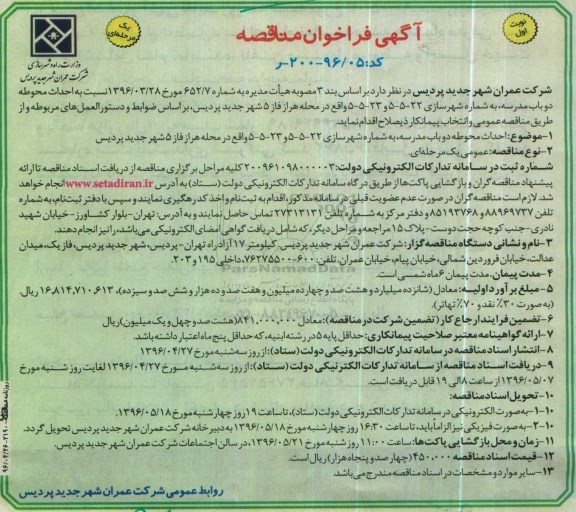 آگهی فراخوان مناقصه
نوبت اول
یک مرحله‌ای
کد: ۹۶/۰۵-۲۰۰-ر
وزارت راه و شهرسازی
شرکت عمران شهر جدید پردیس
شرکت عمران شهر جدید پردیس در نظر دارد بر اساس بند ۳ مصوبه هیأت مدیره به شماره ۶۵۲/۷ مورخ ۱۳۹۶/۰۳/۲۸ نسبت به احداث محوطه
دو باب مدرسه، به شماره شهرسازی ۲۲-۵-۵ و ۲۳-۵-۵ واقع در محله هراز فاز ۵ شهر جدید پردیس، بر اساس ضوابط و دستورالعمل‌های مربوطه و از
طریق مناقصه عمومی و انتخاب پیمانکار ذیصلاح اقدام نماید.
۱-موضوع: احداث محوطه دو باب مدرسه، به شماره شهرسازی ۲۲-۵-۵ و ۲۳-۵-۵ واقع در محله هراز فاز ۵ شهر جدید پردیس
۲-نوع مناقصه: عمومی یک مرحله‌ای.
شماره ثبت در سامانه تدارکات الکترونیکی دولت: ۲۰۰۹۶۱۰۹۸۰۰۰۰۰۳ کلیه مراحل برگزاری مناقصه از دریافت اسناد مناقصه تا ارائه
پیشنهاد مناقصه گران و بازگشایی پاکت‌ها از طریق درگاه سامانه تدارکات الکترونیکی دولت (ستاد) به آدرس www.setadiran.ir انجام خواهد
شد. لازم است مناقصه گران در صورت عدم عضویت قبلی در سامانه مذکور، اقدام به ثبت‌نام و اخذ کد رهگیری نمایند و سپس با دفتر ثبت‌نام، به شماره
تلفن ۸۸۹۶۹۷۳۷ و ۸۵۱۹۳۷۶۸ و دفتر مرکز به شماره تلفن ۲۷۳۱۳۱۳۱ تماس حاصل نمایند و به آدرس: تهران-بلوار کشاورز-خیابان شهید
نادری-جنب کوچه حجت دوست-پلاک ۱۵ مراجعه و مراحل دیگر، که شامل دریافت گواهی امضای الکترونیکی می‌باشد، را نیز انجام دهند.
۳-نام و نشانی دستگاه مناقصه گزار: شرکت عمران شهر جدید پردیس. کیلومتر ۱۷ آزاد راه تهران-پردیس، شهر جدید پردیس، فاز یک، میدان
عدالت، خیابان فروردین شمالی، خیابان پیام، خیابان عمران. تلفن: ۶۰۰-۷۶۲۷۵۵۰۰، داخلی ۱۹۵ و ۲۰۳.
۴-مدت پیمان. مدت پیمان ۶ ماه شمسی است.
۵-مبلغ برآورد اولیه: معادل (شانزده میلیارد و هشت صد و چهارده میلیون و هفت صد و ده هزار و شش صد و سیزده)، ۱۶,۸۱۴,۷۱۰,۶۱۳ ریال.
(به صورت ۳۰٪ نقد و ۷۰٪ تهاتر).
۶-تضمین فرایند ارجاع کار (تضمین شرکت در مناقصه): معادل ۸۴۱,۰۰۰,۰۰۰ (هشت صد و چهل و یک میلیون) ریال
۷-ارائه گواهینامه معتبر صلاحیت پیمانکاری: حداقل پایه ۵ در رشته ابنیه، که حداقل پنج ماه اعتبار داشته باشد.
۸-انتشار اسناد مناقصه در سامانه تدارکات الکترونیکی دولت (ستاد): از روز سه‌شنبه مورخ ۱۳۹۶/۰۴/۲۷
۹-دریافت اسناد مناقصه از سامانه تدارکات الکترونیکی دولت (ستاد): از روز سه‌شنبه مورخ ۱۳۹۶/۰۴/۲۷ لغایت روز شنبه مورخ
۱۳۹۶/۰۵/۰۷ از ساعت ۸ الی ۱۹ قابل دریافت است.
۱۰-تحویل اسناد مناقصه:
۱-۱۰-به صورت الکترونیکی در سامانه تدارکات الکترونیکی دولت (ستاد)، تا ساعت ۱۹ روز چهارشنبه مورخ ۱۳۹۶/۰۵/۱۸.
۲-۱۰-به صورت فیزیکی نیز الزاماً باید، تا ساعت ۱۶:۳۰ روز چهارشنبه مورخ ۱۳۹۶/۰۵/۱۸ به دبیرخانه شرکت عمران شهر جدید پردیس تحویل گردد.
۱۱-زمان و محل بازگشایی پاکت‌ها: ساعت ۱۱:۰۰ روز شنبه مورخ ۱۳۹۶/۰۵/۲۱، در سالن اجتماعات شرکت عمران شهر جدید پردیس.
۱۲-قیمت اسناد مناقصه ۴۵۰,۰۰۰ (چهار صد و پنجاه هزار) ریال است.
۱۳-سایر موارد و مشخصات در اسناد مناقصه مندرج می‌باشد.
روابط عمومی شرکت عمران شهر جدید پردیس
ParsNamadData